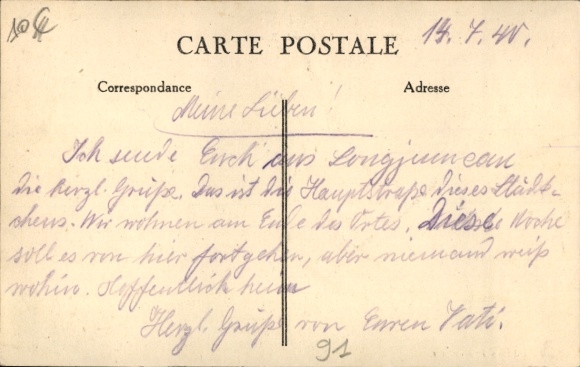 10 €
14. 7. 40.
CARTE POSTALE
Correspondance
Adresse
Meine Lieben!
Ich sende Euch aus Longjumeau
die herzl. Grüße. Das ist die Hauptstraße dieses Städt-
chens. Wir wohnen am Ende des Ortes. Diese Woche
soll es von hier fortgehen, aber niemand weiß
wohin. Hoffentlich heim
Herzl. Grüße von Euren Vati.
91